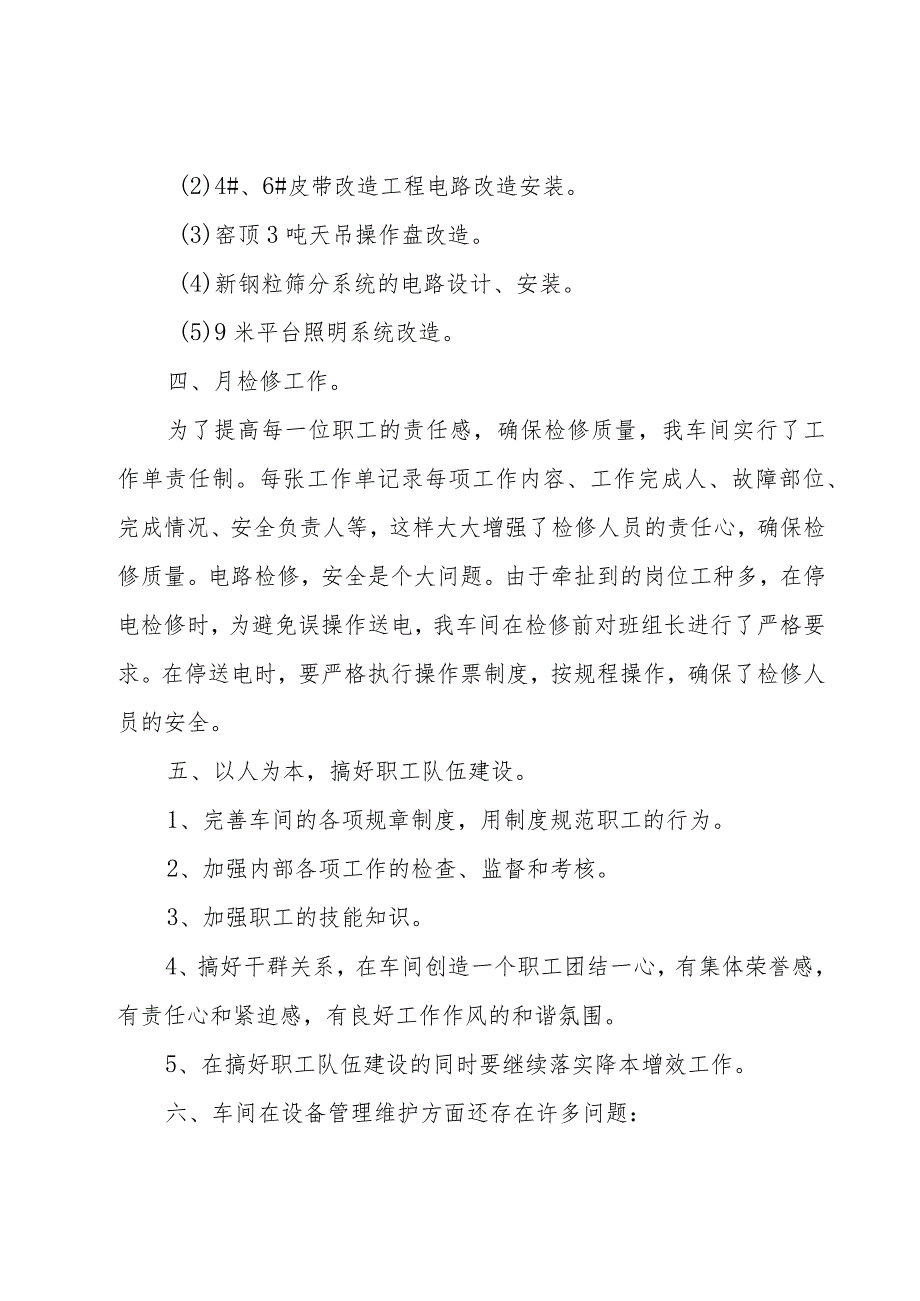 (2)4#、6#皮带改造工程电路改造安装。
(3)窑顶3吨天吊操作盘改造。
(4)新钢粒筛分系统的电路设计、安装。
(5)9米平台照明系统改造。
四、月检修工作。
为了提高每一位职工的责任感，确保检修质量，我车间实行了工
作单责任制。每张工作单记录每项工作内容、工作完成人、故障部位、
完成情况、安全负责人等，这样大大增强了检修人员的责任心，确保检
修质量。电路检修，安全是个大问题。由于牵扯到的岗位工种多，在停
电检修时，为避免误操作送电，我车间在检修前对班组长进行了严格要
求。在停送电时，要严格执行操作票制度，按规程操作，确保了检修人
员的安全。
五、以人为本，搞好职工队伍建设。
1、完善车间的各项规章制度，用制度规范职工的行为。
2、加强内部各项工作的检查、监督和考核。
3、加强职工的技能知识。
4、搞好干群关系，在车间创造一个职工团结一心，有集体荣誉感，
有责任心和紧迫感，有良好工作作风的和谐氛围。
5、在搞好职工队伍建设的同时要继续落实降本增效工作。
六、车间在设备管理维护方面还存在许多问题：